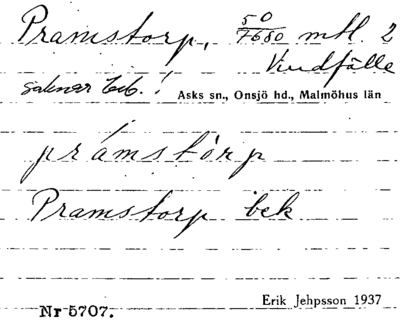 Pramstorp, 50/7680 mtl. 2
Vindfälle
saknar beb.! Asks sn., Onsjö hd., Malmöhus län
prámstòrp
Pramstorp bek
Erik Jehpsson 1937
Nr 5707.